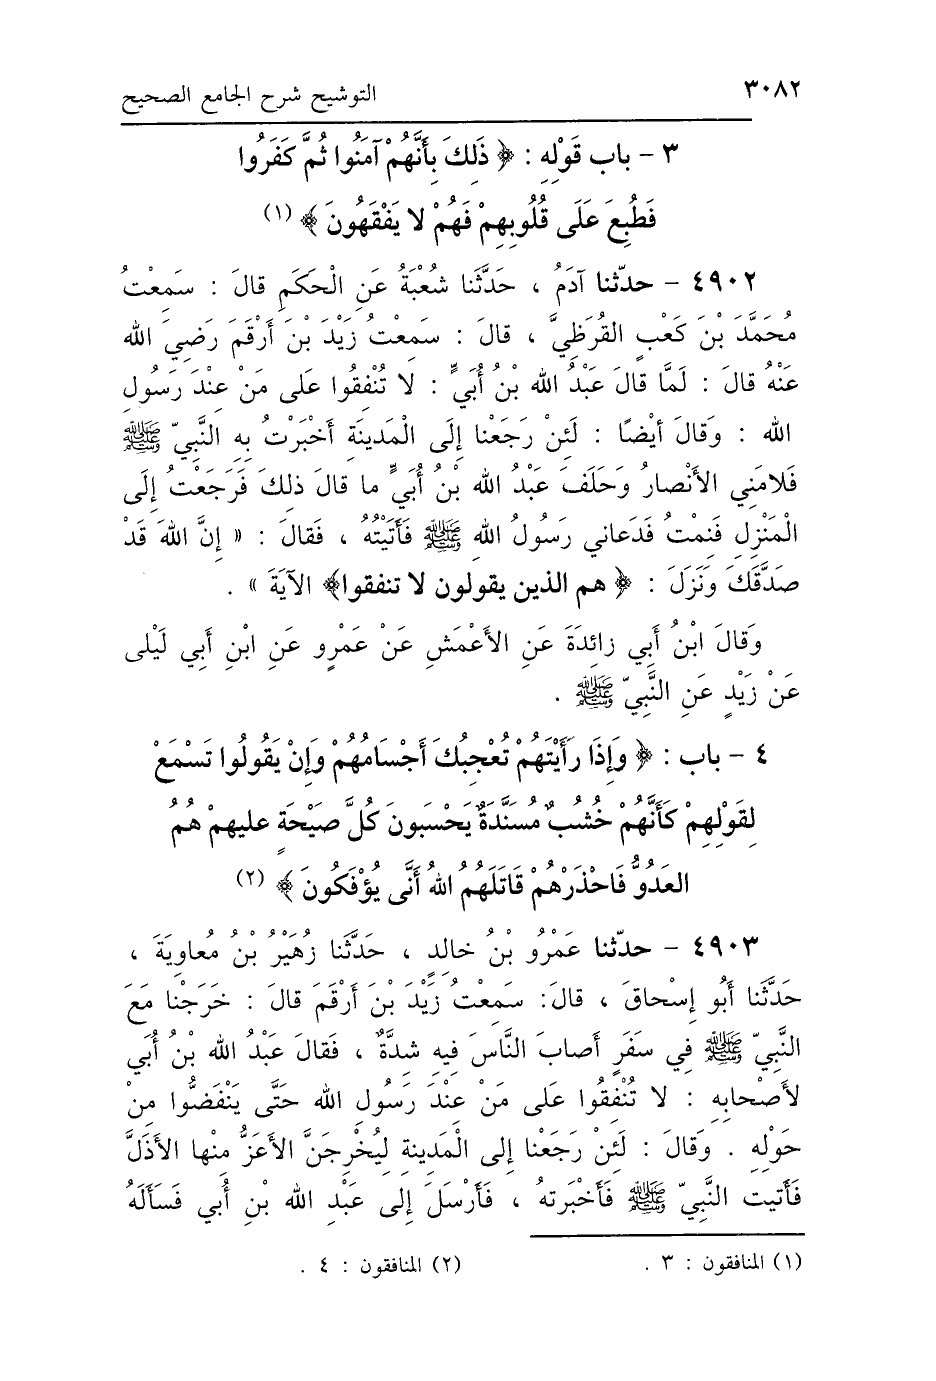 ٣٠٨٢ التوشيح شرح الجامع الصحيح
٣ - باب قَوْلِهِ : ﴿ ذَلِكَ بِأَنَّهُمْ آمَنُوا ثُمَّ كَفَرُوا
فَطُبِعَ عَلَى قُلُوبِهِمْ فَهُمْ لا يَفْقَهُونَ ﴾ (١)
٤٩٠٢ - حدّثنا آدَمُ ، حَدَّثَنا شُعْبَةُ عَنِ الْحَكَمِ قالَ : سَمِعْتُ
مُحَمَّدَ بْنَ كَعْبٍ القُرَظِيَّ ، قالَ : سَمِعْتُ زَيْدَ بْنَ أَرْقَمَ رَضِيَ الله
عَنْهُ قالَ : لَمَّا قالَ عَبْدُ الله بْنُ أُبَيٍّ : لا تُنْفِقُوا عَلى مَنْ عِنْدَ رَسُولِ
الله : وَقالَ أيْضًا : لَئِنْ رَجَعْنا إلَى الْمَدِينَةِ أَخْبَرْتُ بِهِ النَّبِيّ ﷺ
فَلامَنِي الأَنْصارُ وَحَلَفَ عَبْدُ الله بْنُ أُبَيٍّ ما قالَ ذلِكَ فَرَجَعْتُ إلَى
الْمَنْزِلِ فَنِمْتُ فَدَعانِي رَسُولُ الله ﷺ فَأَتَيْتُهُ ، فَقالَ : « إنَّ اللهَ قَدْ
صَدَّقَكَ وَنَزَلَ : ﴿ هم الذين يقولون لا تنفقوا﴾ الآيَةَ » .
وَقالَ ابْنُ أبِي زائِدَةَ عَنِ الأَعْمَشِ عَنْ عَمْرٍو عَنِ ابْنِ أبي لَيْلى
عَنْ زَيْدٍ عَنِ النَّبِيّ ﷺ .
٤ - باب : ﴿ وَإذَا رَأَيْتَهُمْ تُعْجِبُكَ أَجْسَامُهُمْ وَإنْ يَقُولُوا تَسْمَعْ
لِقَوْلِهِمْ كَأَنَّهُمْ خُشُبٌ مُسَنَّدَةٌ يَحْسَبُونَ كُلَّ صَيْحَةٍ عليهِمْ هُمُ
العَدُوُّ فَاحْذَرْهُمْ قَاتَلَهُمُ اللهُ أَنَّى يُؤْفَكُونَ ﴾ (٢)
٤٩٠٣ - حدّثنا عَمْرُو بْنُ خالِدٍ ، حَدَّثَنا زُهَيْرُ بْنُ مُعاوِيَةَ ،
حَدَّثَنا أَبُو إسْحاقَ ، قالَ: سَمِعْتُ زَيْدَ بْنَ أَرْقَمَ قالَ : خَرَجْنا مَعَ
النَّبِيّ ﷺ فِي سَفَرٍ أصابَ النَّاسَ فِيهِ شِدَّةٌ ، فَقالَ عَبْدُ الله بْنُ أُبَي
لأَصْحابِهِ : لا تُنْفِقُوا عَلى مَنْ عِنْدَ رَسُولِ الله حَتَّى يَنْفَضُّوا مِنْ
حَوْلِهِ . وَقالَ : لَئِنْ رَجَعْنا إلى الْمَدِينةِ لَيُخْرِجَنَّ الأعَزُّ مِنْها الأذَلَّ
فَأَتيت النَّبِيّ ﷺ فَأَخْبَرتهُ ، فَأَرْسَلَ إلى عَبْدِ الله بْنِ أُبي فَسَأَلَهُ
(١) المنافقون : ٣ . (٢) المنافقون : ٤ .